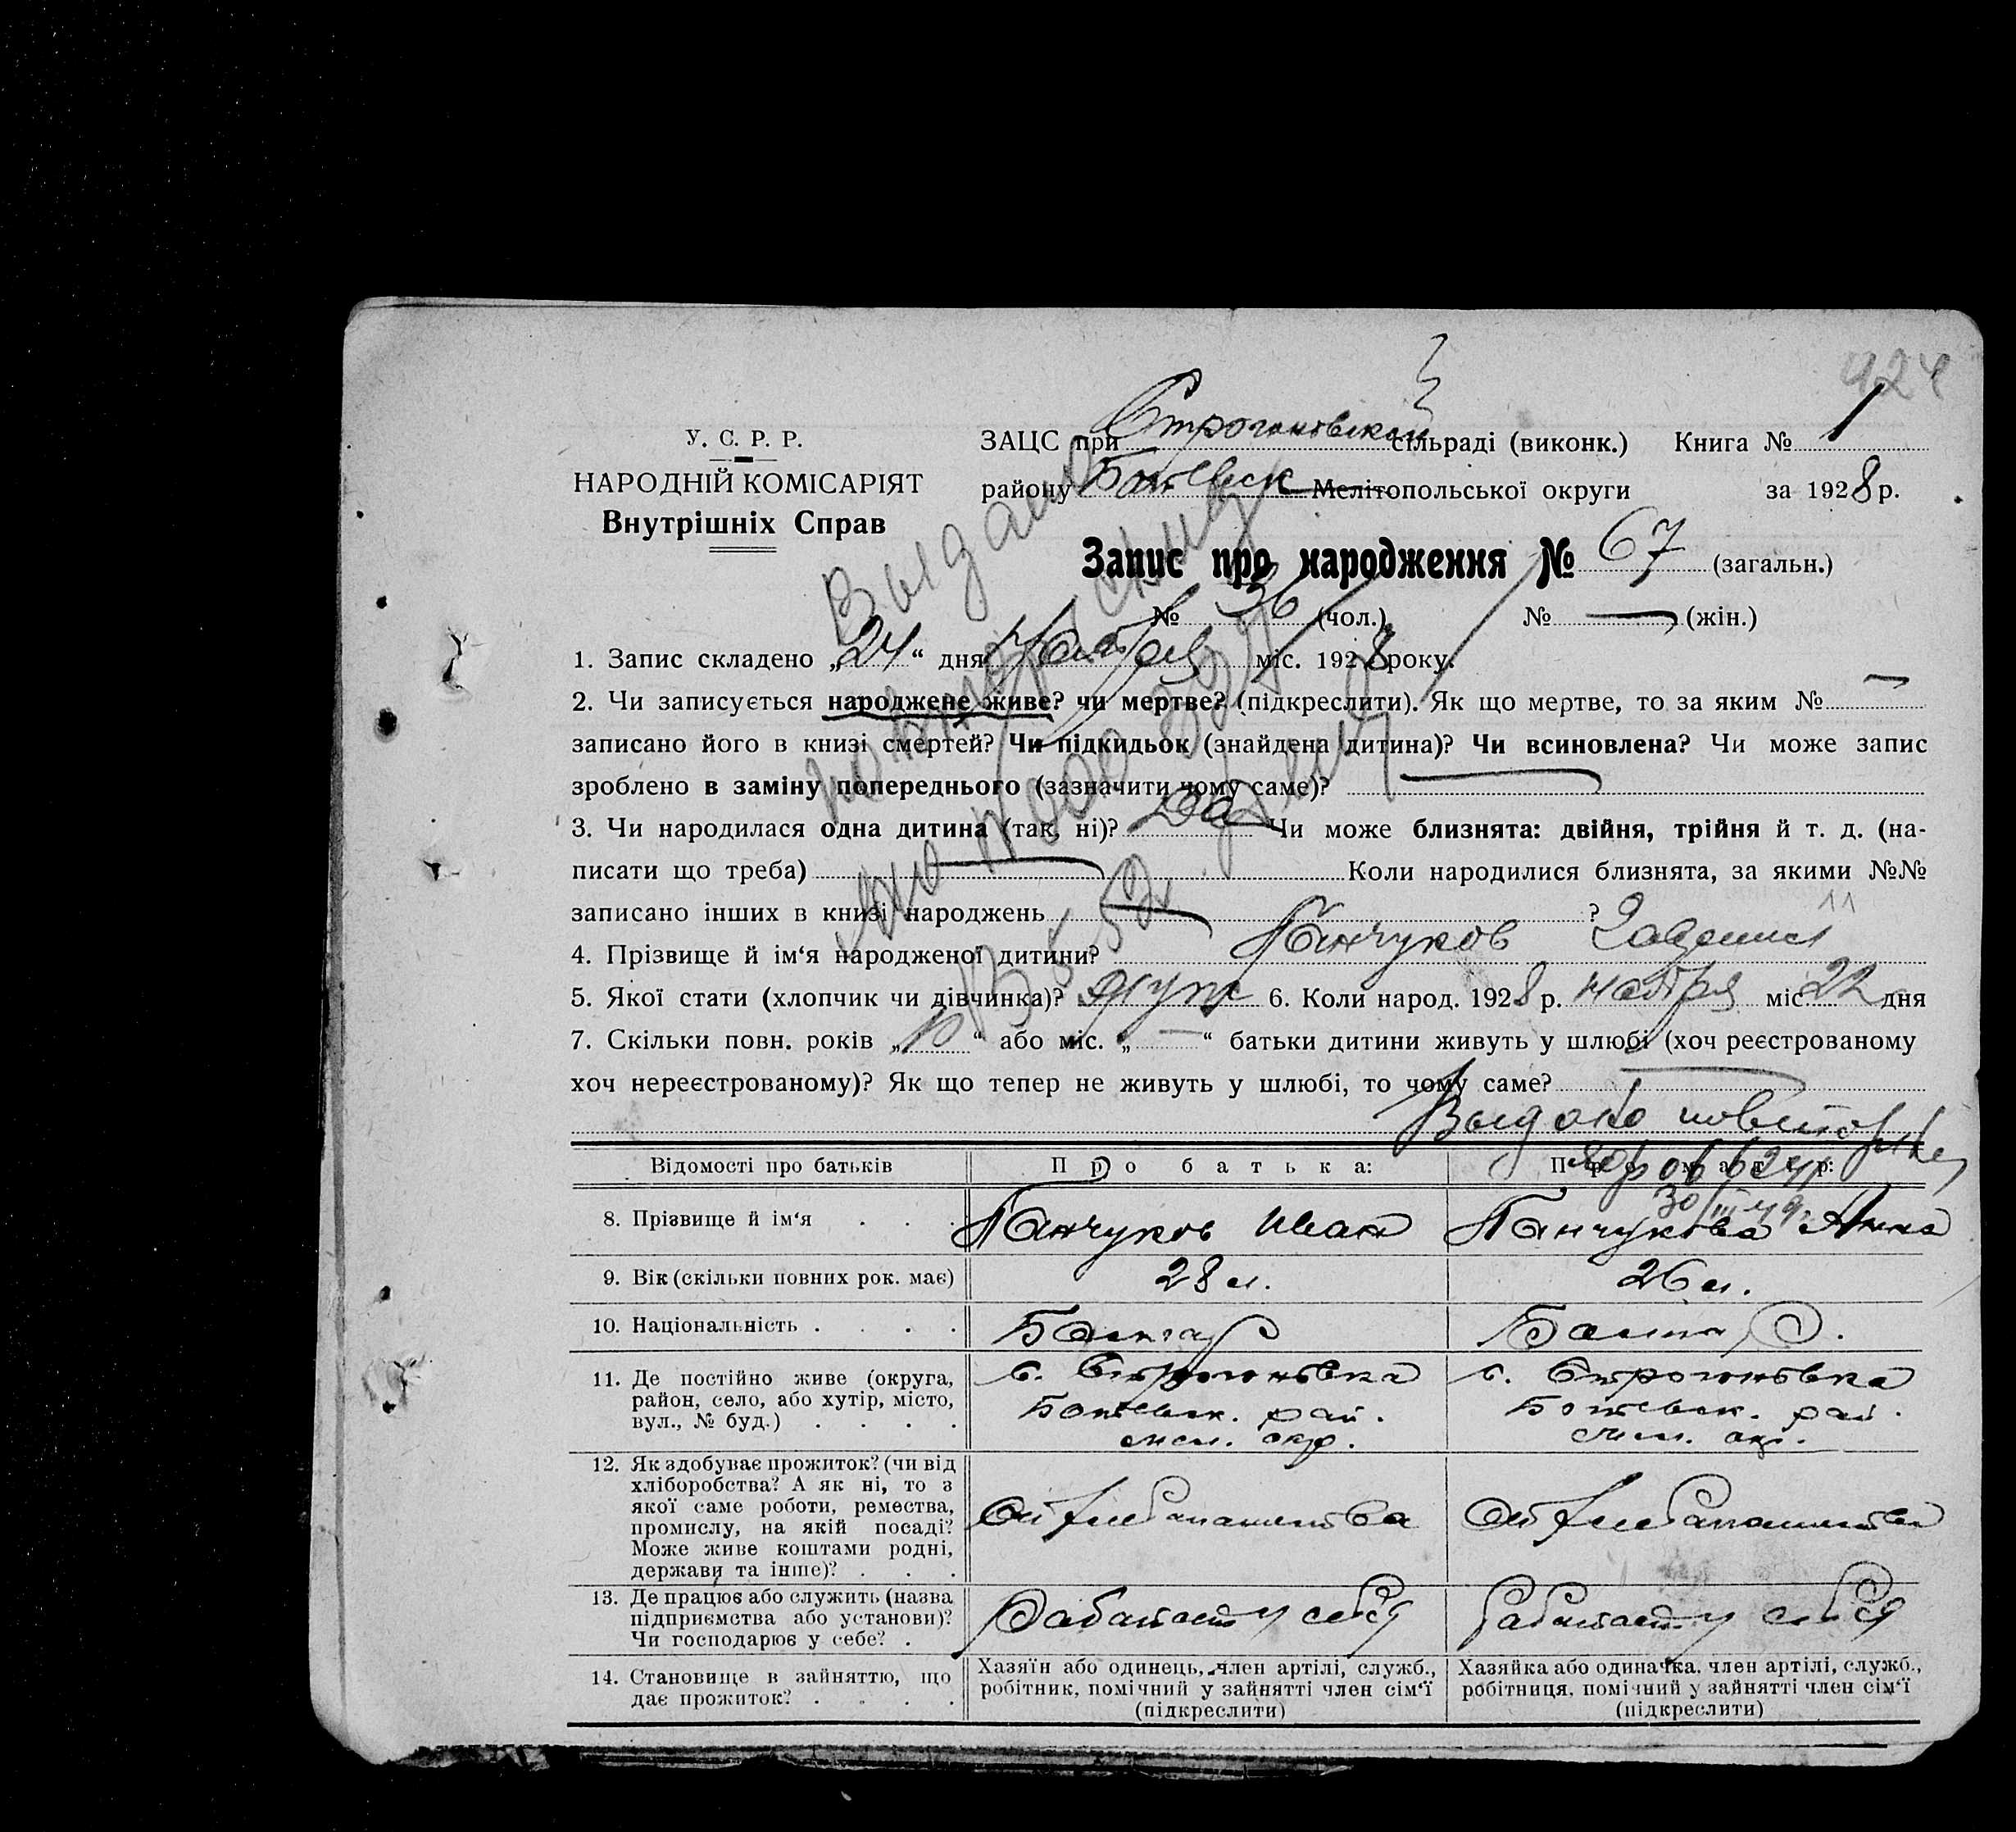 424
У. С. Р. Р.
НАРОДНІЙ КОМІСАРІЯТ
Внутрішніх Справ
ЗАЦС при Строгановской сільраді (виконк.) Книга № 1
району Ботевск Мелітопольської округи за 1928 р.
Запис про народження № 67 (загальн.)
№ 36 (чол.) № — (жін.)
1. Запис складено „24“ дня Ноября міс. 1928 року.
2. Чи записується народжене живе? чи мертве? (підкреслити). Як що мертве, то за яким № —
записано його в книзі смертей? Чи підкидьок (знайдена дитина)? Чи всиновлена? Чи може запис
зроблено в заміну попереднього (зазначити чому саме)? —
3. Чи народилася одна дитина (так, ні)? Да Чи може близнята: двійня, трійня й т. д. (на-
писати що треба) — Коли народилися близнята, за якими №№
записано інших в книзі народжень — ?
4. Прізвище й ім‘я народженої дитини? Панчуков
5. Якої стати (хлопчик чи дівчинка)? муж 6. Коли народ. 1928 р. ноября міс 22 дня
7. Скільки повн. років „10“ або міс. „—“ батьки дитини живуть у шлюбі (хоч реєстрованому
хоч нереєстрованому)? Як що тепер не живуть у шлюбі, то чому саме? —
Выдано повторно
Відомості про батьків Про батька: Про матір:
8. Прізвище й ім‘я . . . Панчуков Иван Панчукова Анна
9. Вік (скільки повних рок. має) 28 л. 26 л.
10. Національність . . . . Болгар Болгар.
11. Де постійно живе (округа, район, село, або хутір, місто, вул., № буд.) . . . . с. Строгоновка Ботевск. рай. мел. окр. с. Строгоновка Ботевск. рай. мел. окр.
12. Як здобуває прожиток? (чи від хліборобства? А як ні, то з якої саме роботи, ремества, промислу, на якій посаді? Може живе коштами родні, держави та інше)? . . . От хлебапашества От хлебапашества
13. Де працює або служить (назва підприємства або установи)? Чи господарює у себе? . Работает у себя Работает у себя
14. Становище в зайняттю, що дає прожиток? . . . . Хазяїн або одинець, член артілі, служб., робітник, помічний у зайнятті член сім‘ї (підкреслити) Хазяйка або одиначка, член артілі, служб., робітниця, помічний у зайнятті член сім‘ї (підкреслити)